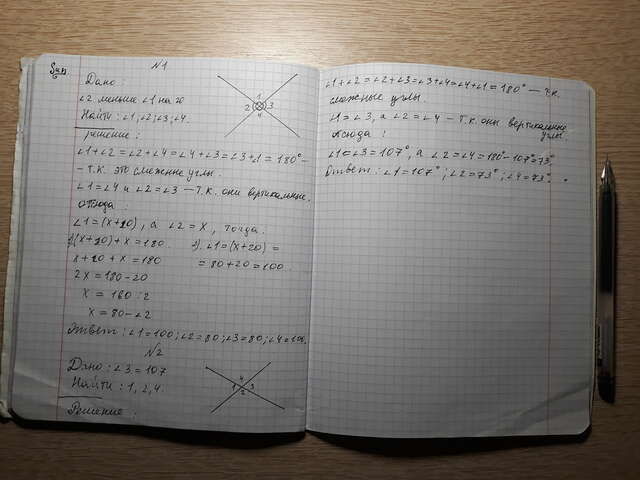 N1
Дано:
∠2 меньше ∠1 на 20
Найти: ∠1, ∠2; ∠3, ∠4.
1
2 3
4
решение:
∠1+∠2=∠2+∠4=∠4+∠3=∠3+∠1=180°-
- т.к. это смежные углы.
∠1=∠4 и ∠2=∠3 - т.к. они вертикальные.
Отсюда:
∠1=(x+20), а ∠2=x, тогда.
1)(x+20)+x=180. 2). ∠1=(x+20)=
x+20+x=180 =80+20=100.
2x=180-20
x=160:2
x=80-∠2
Ответ: ∠1=100; ∠2=80; ∠3=80; ∠4=100.
N2
Дано: ∠3=107
Найти: 1, 2, 4.
4
1 3
2
Решение:
∠1+∠2=∠2+∠3=∠3+∠4=∠4+∠1=180° - т.к.
смежные углы.
∠1=∠3, а ∠2=∠4 - т.к. они вертикальные
углы.
Отсюда:
∠1=∠3=107°, а ∠2=∠4=180°-107°=73°
Ответ: ∠1=107°; ∠2=73°; ∠4=73°.